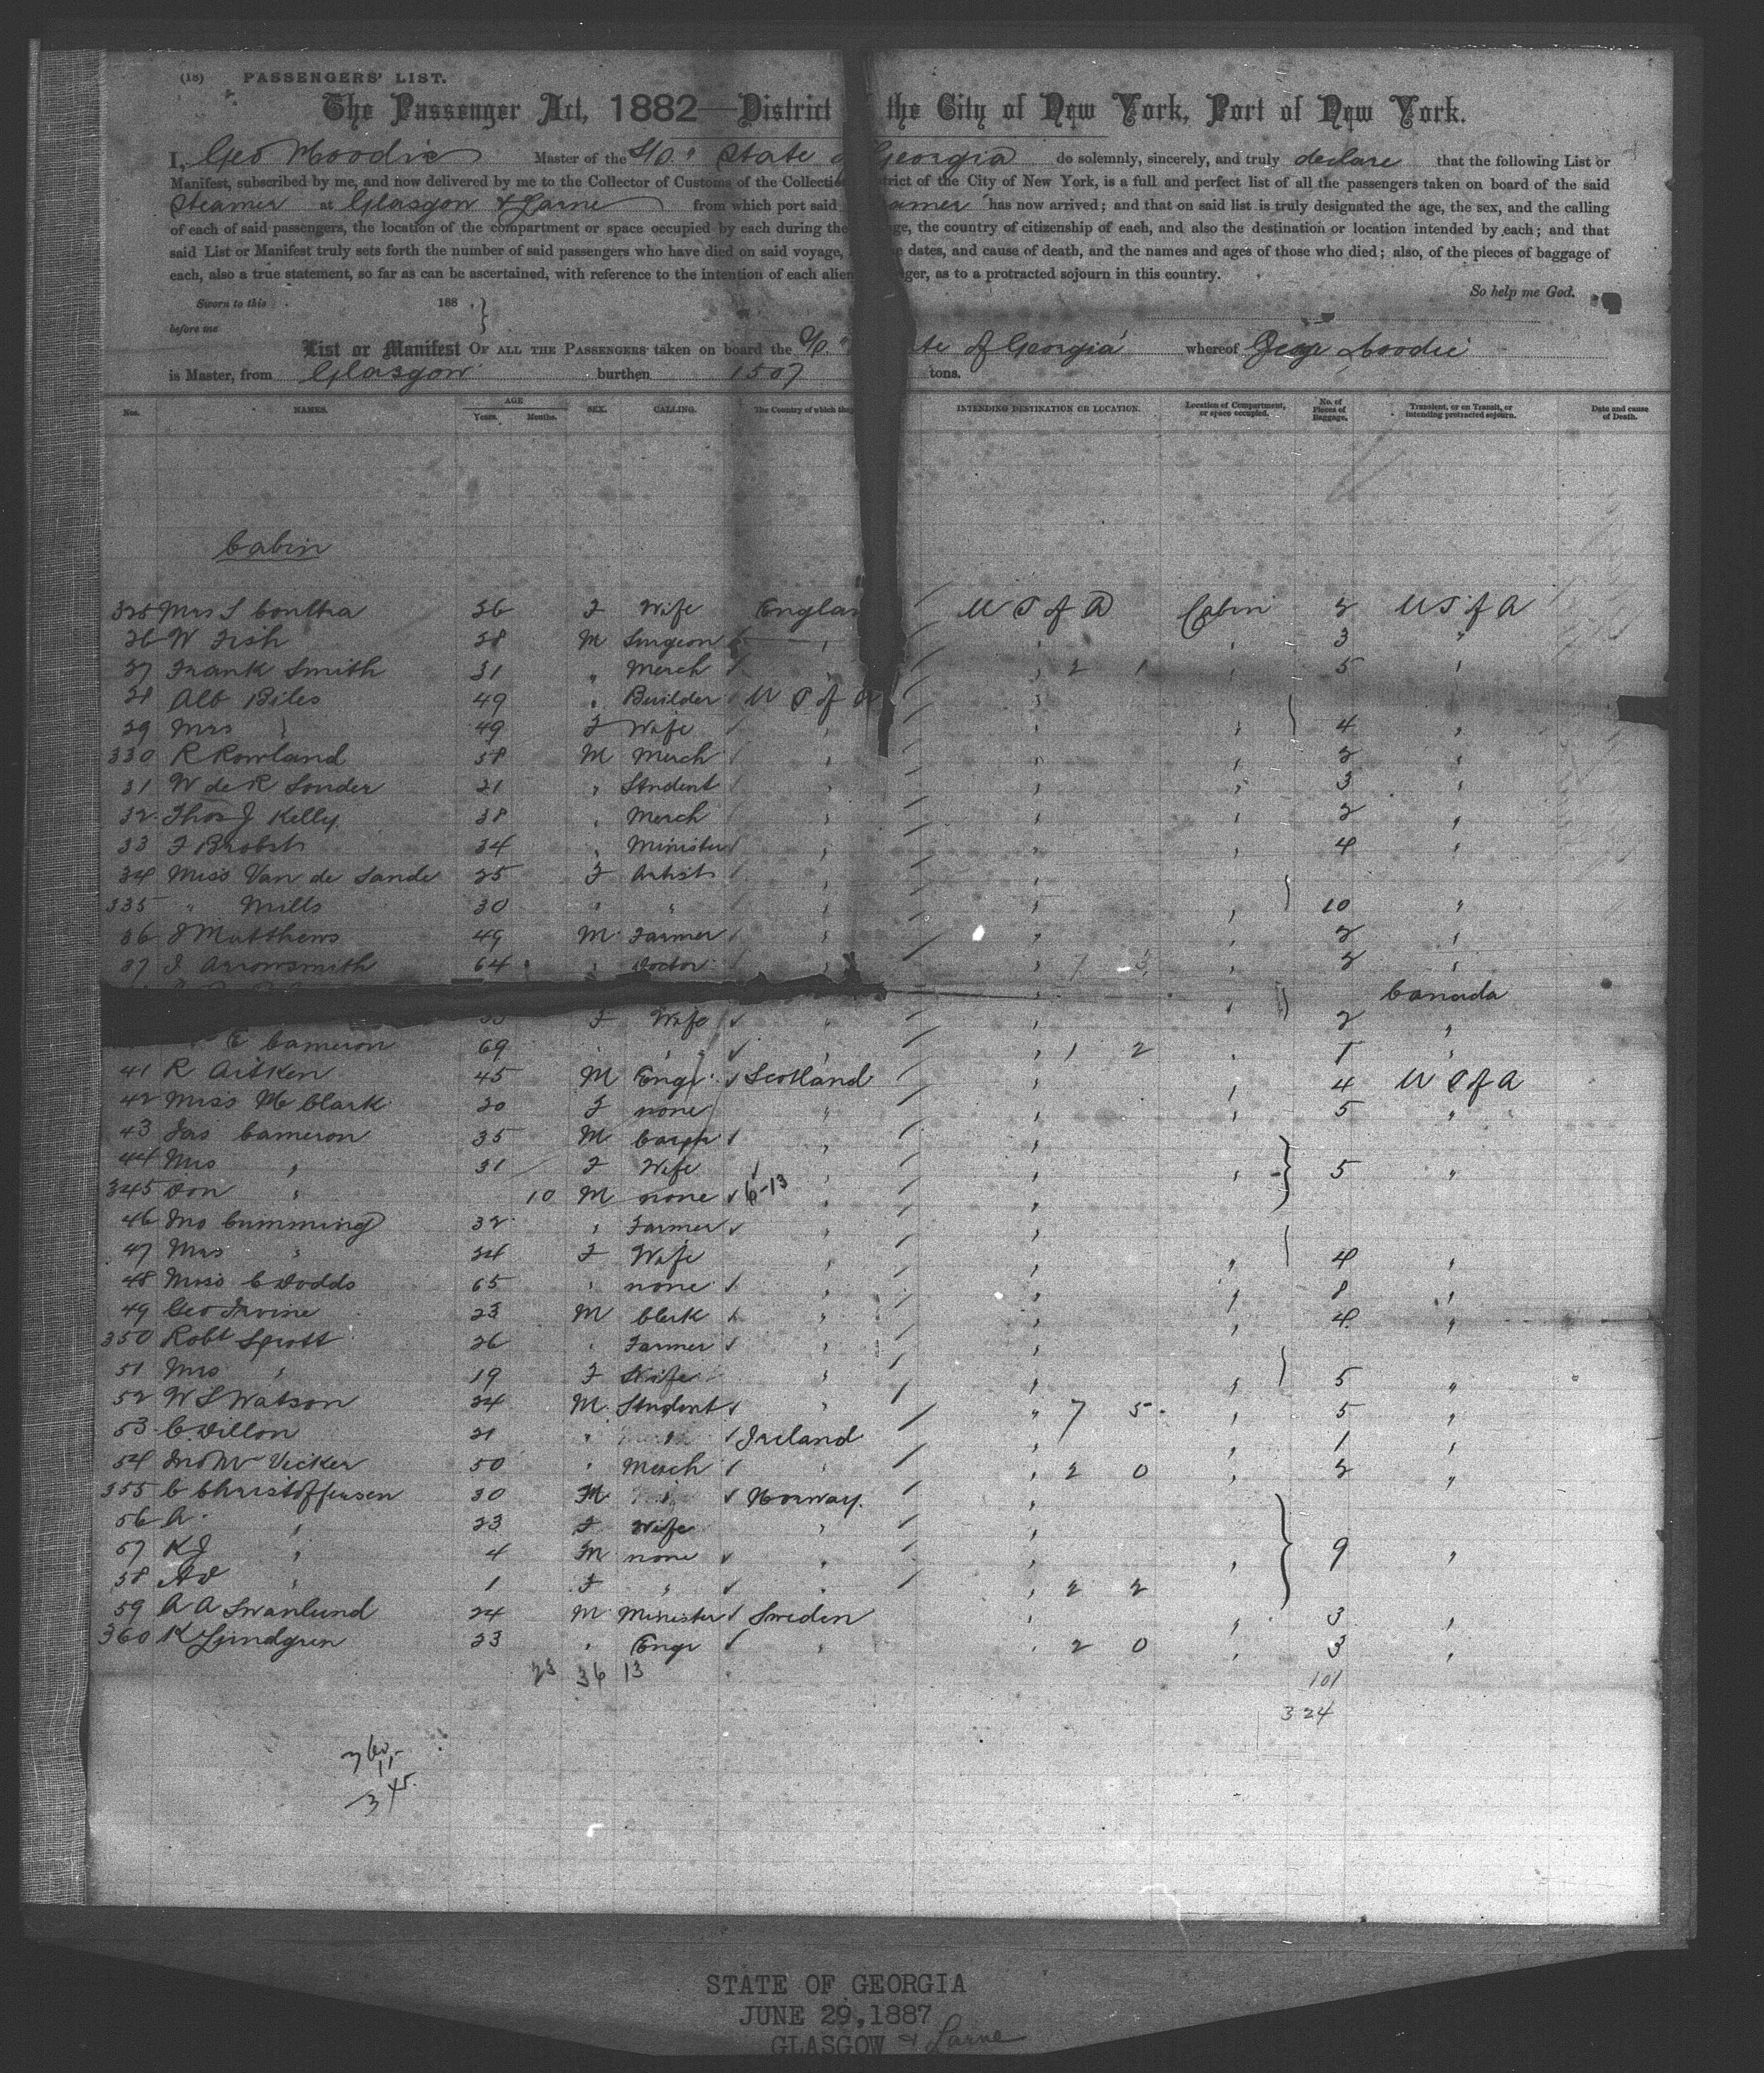 (18) PASSENGERS' LIST.
The Passenger Act, 1882—District the City of New York, Port of New York.
I, Geo Moodie Master of the S/S. " State of Georgia do solemnly, sincerely, and truly declare that the following List or
Manifest, subscribed by me, and now delivered by me to the Collector of Customs of the Collectio strict of the City of New York, is a full and perfect list of all the passengers taken on board of the said
Steamer at Glasgow & Larne from which port said eamer has now arrived; and that on said list is truly designated the age, the sex, and the calling
of each of said passengers, the location of the compartment or space occupied by each during the ge, the country of citizenship of each, and also the destination or location intended by each; and that
said List or Manifest truly sets forth the number of said passengers who have died on said voyage, e dates, and cause of death, and the names and ages of those who died; also, of the pieces of baggage of
each, also a true statement, so far as can be ascertained, with reference to the intention of each alien ger, as to a protracted sojourn in this country.
So help me God.
Sworn to this 188 }
before me
List or Manifest OF ALL THE PASSENGERS taken on board the S/S. " te of Georgia whereof Geo Moodie
is Master, from Glasgow burthen 1507 tons.
Nos. NAMES. AGE Years. Months. SEX. CALLING. The Country of which they INTENDING DESTINATION OR LOCATION. Location of Compartment, or space occupied. No. of Pieces of Baggage. Transient, or on Transit, or intending protracted sojourn. Date and cause of Death.
Cabin
325 Mrs S 36 F Wife Englan U S of A Cabin 2 U S of A
26 W Fish 38 M Surgeon " " " 3 "
27 Frank Smith 31 " Merch " " 2 1 " 5 "
28 Alb Biles 49 " Builder U S of A "
29 Mrs " 49 F Wife " " " 4 "
330 R Rowland 58 M Merch " " " 2 "
31 W de R Souder 21 " Student " " " 3 "
32 Thos J Kelly 38 " Merch " " " 2 "
33 F Brobst 34 " Minister " " " 4 "
34 Miss Van de Sande 25 F Artist " "
335 " Mills 30 " " " " " 10 "
36 J Matthews 49 M Farmer " " " 2 "
37 J Arrowsmith 64 " Doctor " " 7 3 " 2 "
" " Canada
F Wife " " 2 "
E Cameron 69 " " " " 1 2 " 1 "
41 R Aitken 45 M Engr Scotland " " 4 U S of A
42 Miss M Clark 20 F none " " " 5 "
43 Jas Cameron 35 M Carptr " "
44 Mrs " 31 F Wife " " " 5 "
345 Don " 10 M none 6-13 " "
46 Jno Cumming 32 " Farmer " "
47 Mrs " 24 F Wife " " " 4 "
48 Miss C Dodds 65 " none " " " 8 "
49 Geo Irvine 23 M Clerk " " " 4 "
350 Robt Sprott 26 " Farmer " "
51 Mrs " 19 F Wife " " " 5 "
52 W S Watson 24 M Student " " 7 5 " 5 "
53 C Dillon 21 " " Ireland " " 1 "
54 Jno Mc Vicker 50 " Merch " " 2 0 " 2 "
355 C Christoffersen 30 M " Norway. "
56 A. " 23 F Wife " "
57 K J " 4 M none " " " 9 "
58 " 1 F " " " 2 2
59 A A Swanlund 24 M Minister Sweden " " 3 "
360 K Ljundgren 23 " Engr " " 2 0 " 3 "
23 36 13 101
324
360
345
STATE OF GEORGIA
JUNE 29,1887
GLASGOW & Larne